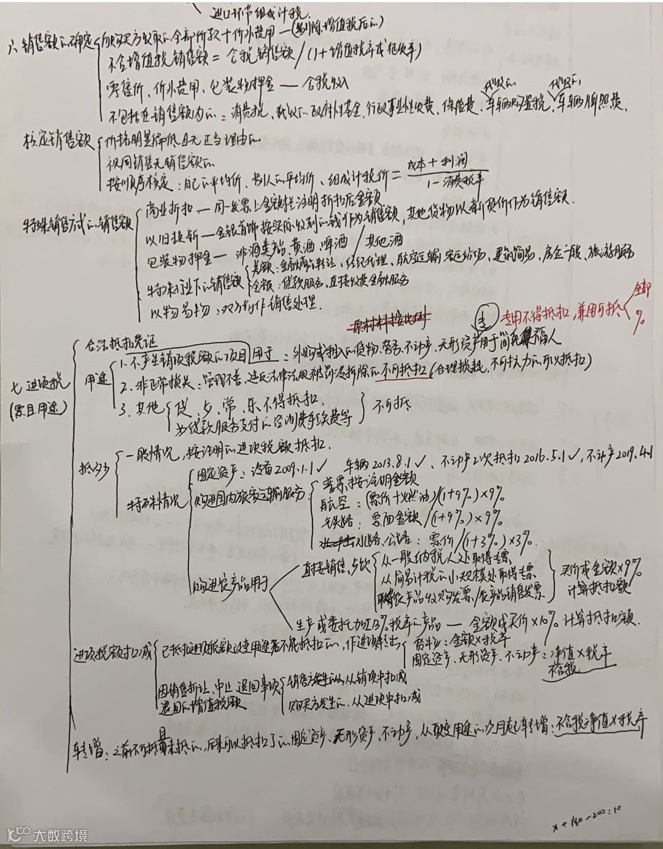 进口环节组成计税
六、销售额的确定
向购买方收取的全部价款+价外费用—(剔除增值税后的)
不含增值税销售额=含税销售额/(1+增值税率或征收率)
零售价、价外费用、包装物押金—含税收入
不包括在销售额内的:消费税、代收的政府性基金、行政事业性收费、保险费、车辆购置税、车辆牌照费
代收的 代收的
核定销售额
价格明显偏低且无正当理由的
视同销售无销售额的
按顺序核定:自己的平均价、别人的平均价、组成计税价=
成本+利润
1-消费税率
特殊销售方式的销售额
商业折扣—同一发票上金额栏注明折扣后金额
以旧换新—金银首饰按实际收到的钱作为销售额,其他货物以新货价作为销售额
包装物押金—非酒类产品、黄酒、啤酒/其他酒
特殊行业下的销售额
差额:金融商品转让、经纪代理、航空运输、客运场站、建筑简易、房企一般、旅游服务
全额:贷款服务、直接收费金融服务
以物易物:双方均作销售处理
七、进项税
(票目用途)
合法抵扣凭证
专用不得抵扣,兼用可抵
全部
%
用途
1.不产生销项税额的项目用于:外购或租入的货物、劳务、不动产、无形资产用于简免集福个人
2.非正常损失:管理不善、违反法律法规被罚没拆除的不可抵扣(合理损耗、不可抗力的可以抵扣)
3.其他
贷、步、常、乐不得抵扣
为贷款服务支付的咨询费手续费等
不可抵
抵多少
一般情况,按注明的进项税额抵扣
特殊情况
固定资产:没有2009.1.1✓ 车辆2013.8.1✓、不动产2次抵扣2016.5.1✓,不动产2019.4.1
购进国内旅客运输服务
专票、按注明金额
航空:(票价+燃油)/(1+9%)×9%
铁路:票面金额/(1+9%)×9%
水路公路:票价/(1+3%)×3%
购进农产品用于
直接销售、9%
从一般纳税人处取得专票
从简易计税的小规模处取得专票
农产品收购发票/农产品销售发票
买价或金额×9%
计算抵扣额
生产或委托加工13%税率的产品—金额或买价×10%计算抵扣额
进项税额扣减
已抵扣进项税额改变用途等不能抵扣的,作进项转出
货物:金额×税率
固定资产、无形资产、不动产:净值×税率
不含税
因销售折让、中止、退回事项
退回的增值税额
销售方发生的,从销项中扣减
购买方发生的,从进项中扣减
转增:之前不可抵且未抵的,后来可以抵扣了的固定资产、无形资产、不动产,从改变用途的次月起转增:不含税净值×税率
x+140-200=10
大数跨境